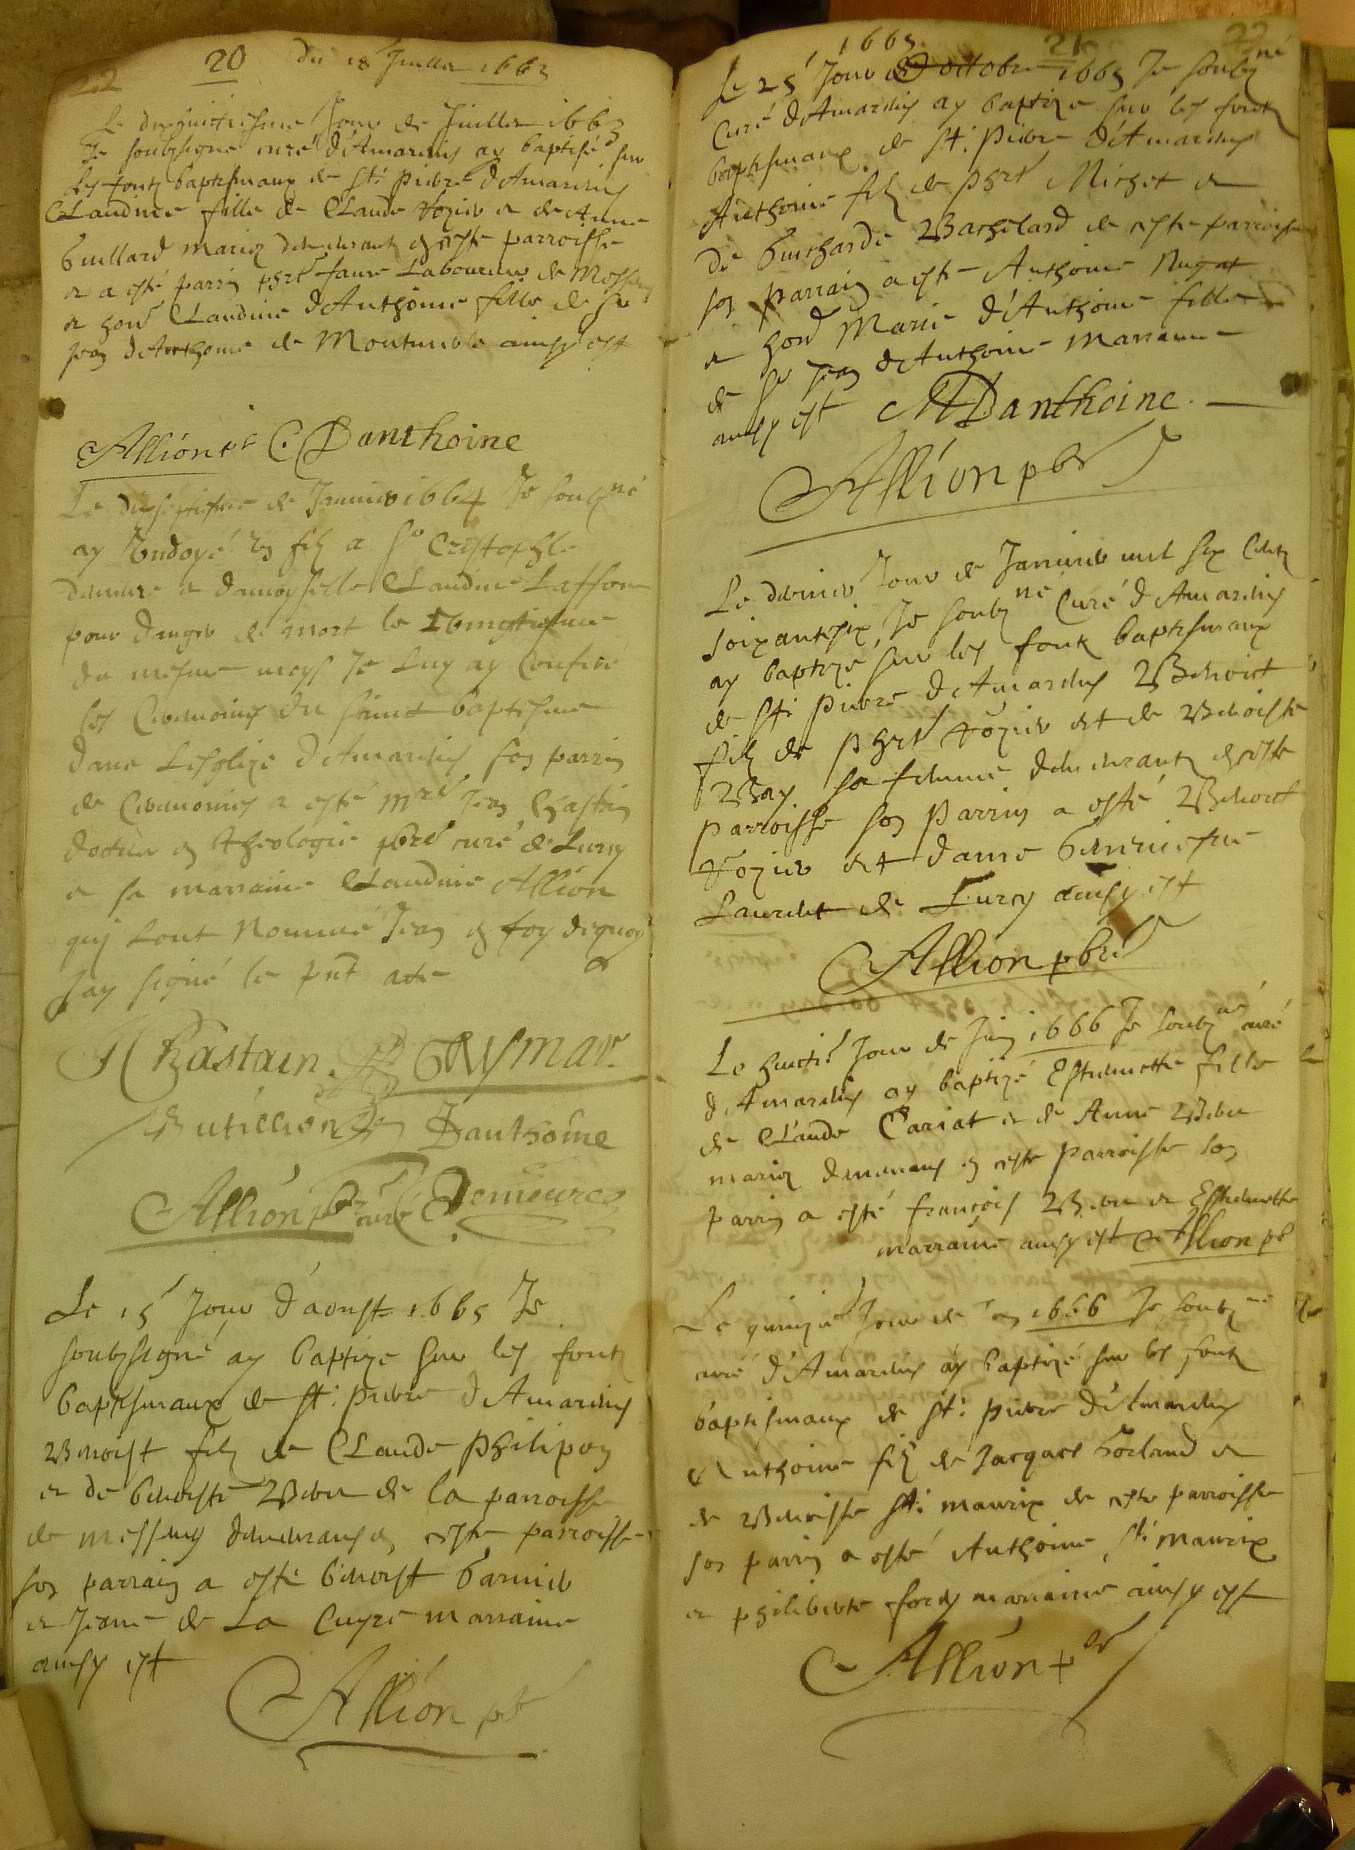 20 du 18 Juillet 1663
Le dixhuictiesme Jour de Juillet 1663
Je soubsigné curé d'Amareins ay baptisé sur
les fontz baptismaux de St: Pierre d'Amareins
Claudine fille de Claude Rozier et de Anne
Guillard mariez demeurantz en ceste parroisse
et a esté parrin faure Laboureur de Messimy
et hon Claudine d'Anthoine fille de Sr
Jean d'Anthoine de Montmerle ainsy est
Allion C: Danthoine
Le dixseptiesme de Janvier 1664 Je soubné
ay Ondoyé un filz a Sr Cristophle
Demeure et damoyselle Claudine Laffon
pour danger de mort le
du mesme moys Je luy ay Conferé
les Ceremonies du sainct baptesme
dans Lesglize d'Amareins son parrin
de Ceremonies a esté Mre Jean Chastain
docteur en theologie pbre curé de Lurcy
et sa marraine Claudine Allion
qui Lont Nommé Jean en foy dequoy
Jay signé le pnt acte
J Chastain Aymar
Butillion Danthoine
Allion pbre curé C. Demeure
Le 15 Jour d'aoust 1665 Je
soubzsigné ay baptizé sur les fontz
baptismaux de St: Pierre d'Amareins
Benoist filz de Claude Philipon
et de Benoiste Beben de la parroisse
de Messimy demeurans en ceste parroisse
son parrain a esté Benoist Garnier
et Jeane de La Cuyre marraine
ainsy est
Allion pb
1665 21 22
Le 25 Jour d' octobre 1665 Je soubzné
Curé d'Amareins ay baptize sur les fontz
baptismaux de St: Pierre d'Amareins
Anthoine filz de Phert Michet et
de Guicharde Bachelard de ceste parroisse
son parrain a esté Anthoine Nugat
et hon Marie d'Anthoine fille
de Sr Jean d'Anthoine Marraine
ainsy est M Danthoine
Allion pbr
Le dernier Jour de Janvier mil six Centz
soixantesix Je soubzné Curé d'Amareins
ay baptizé sur les fontz baptismaux
de St: Pierre d'Amareins Benoist
filz de Phert Rozier et de Benoiste
Bay sa femme demeurantz en ceste
parroisse son Parrin a esté Benoist
Rozier et dame Genneiefue
Laurent de Lurcy ainsy est
Allion pbre
Le huictie Jour de Juin 1666 Je soubzné curé
d'Amareins ay baptizé Estiennette fille
de Claude Cariat et de Anne Beben
mariez demeurans en ceste Parroisse son
parrin a esté François Beben et Estiennette
marraine ainsy est Allion pb
Le quinzie Jour de 1666 Je soubzné
curé d'Amareins ay baptizé sur les fontz
baptismaux de St: Pierre d'Amareins
Anthoine filz de Jacques et
de Benoiste St: Maurix de ceste parroisse
son parrin a esté Anthoine St: Maurix
et Philiberte marraine ainsy est
Allion pbr